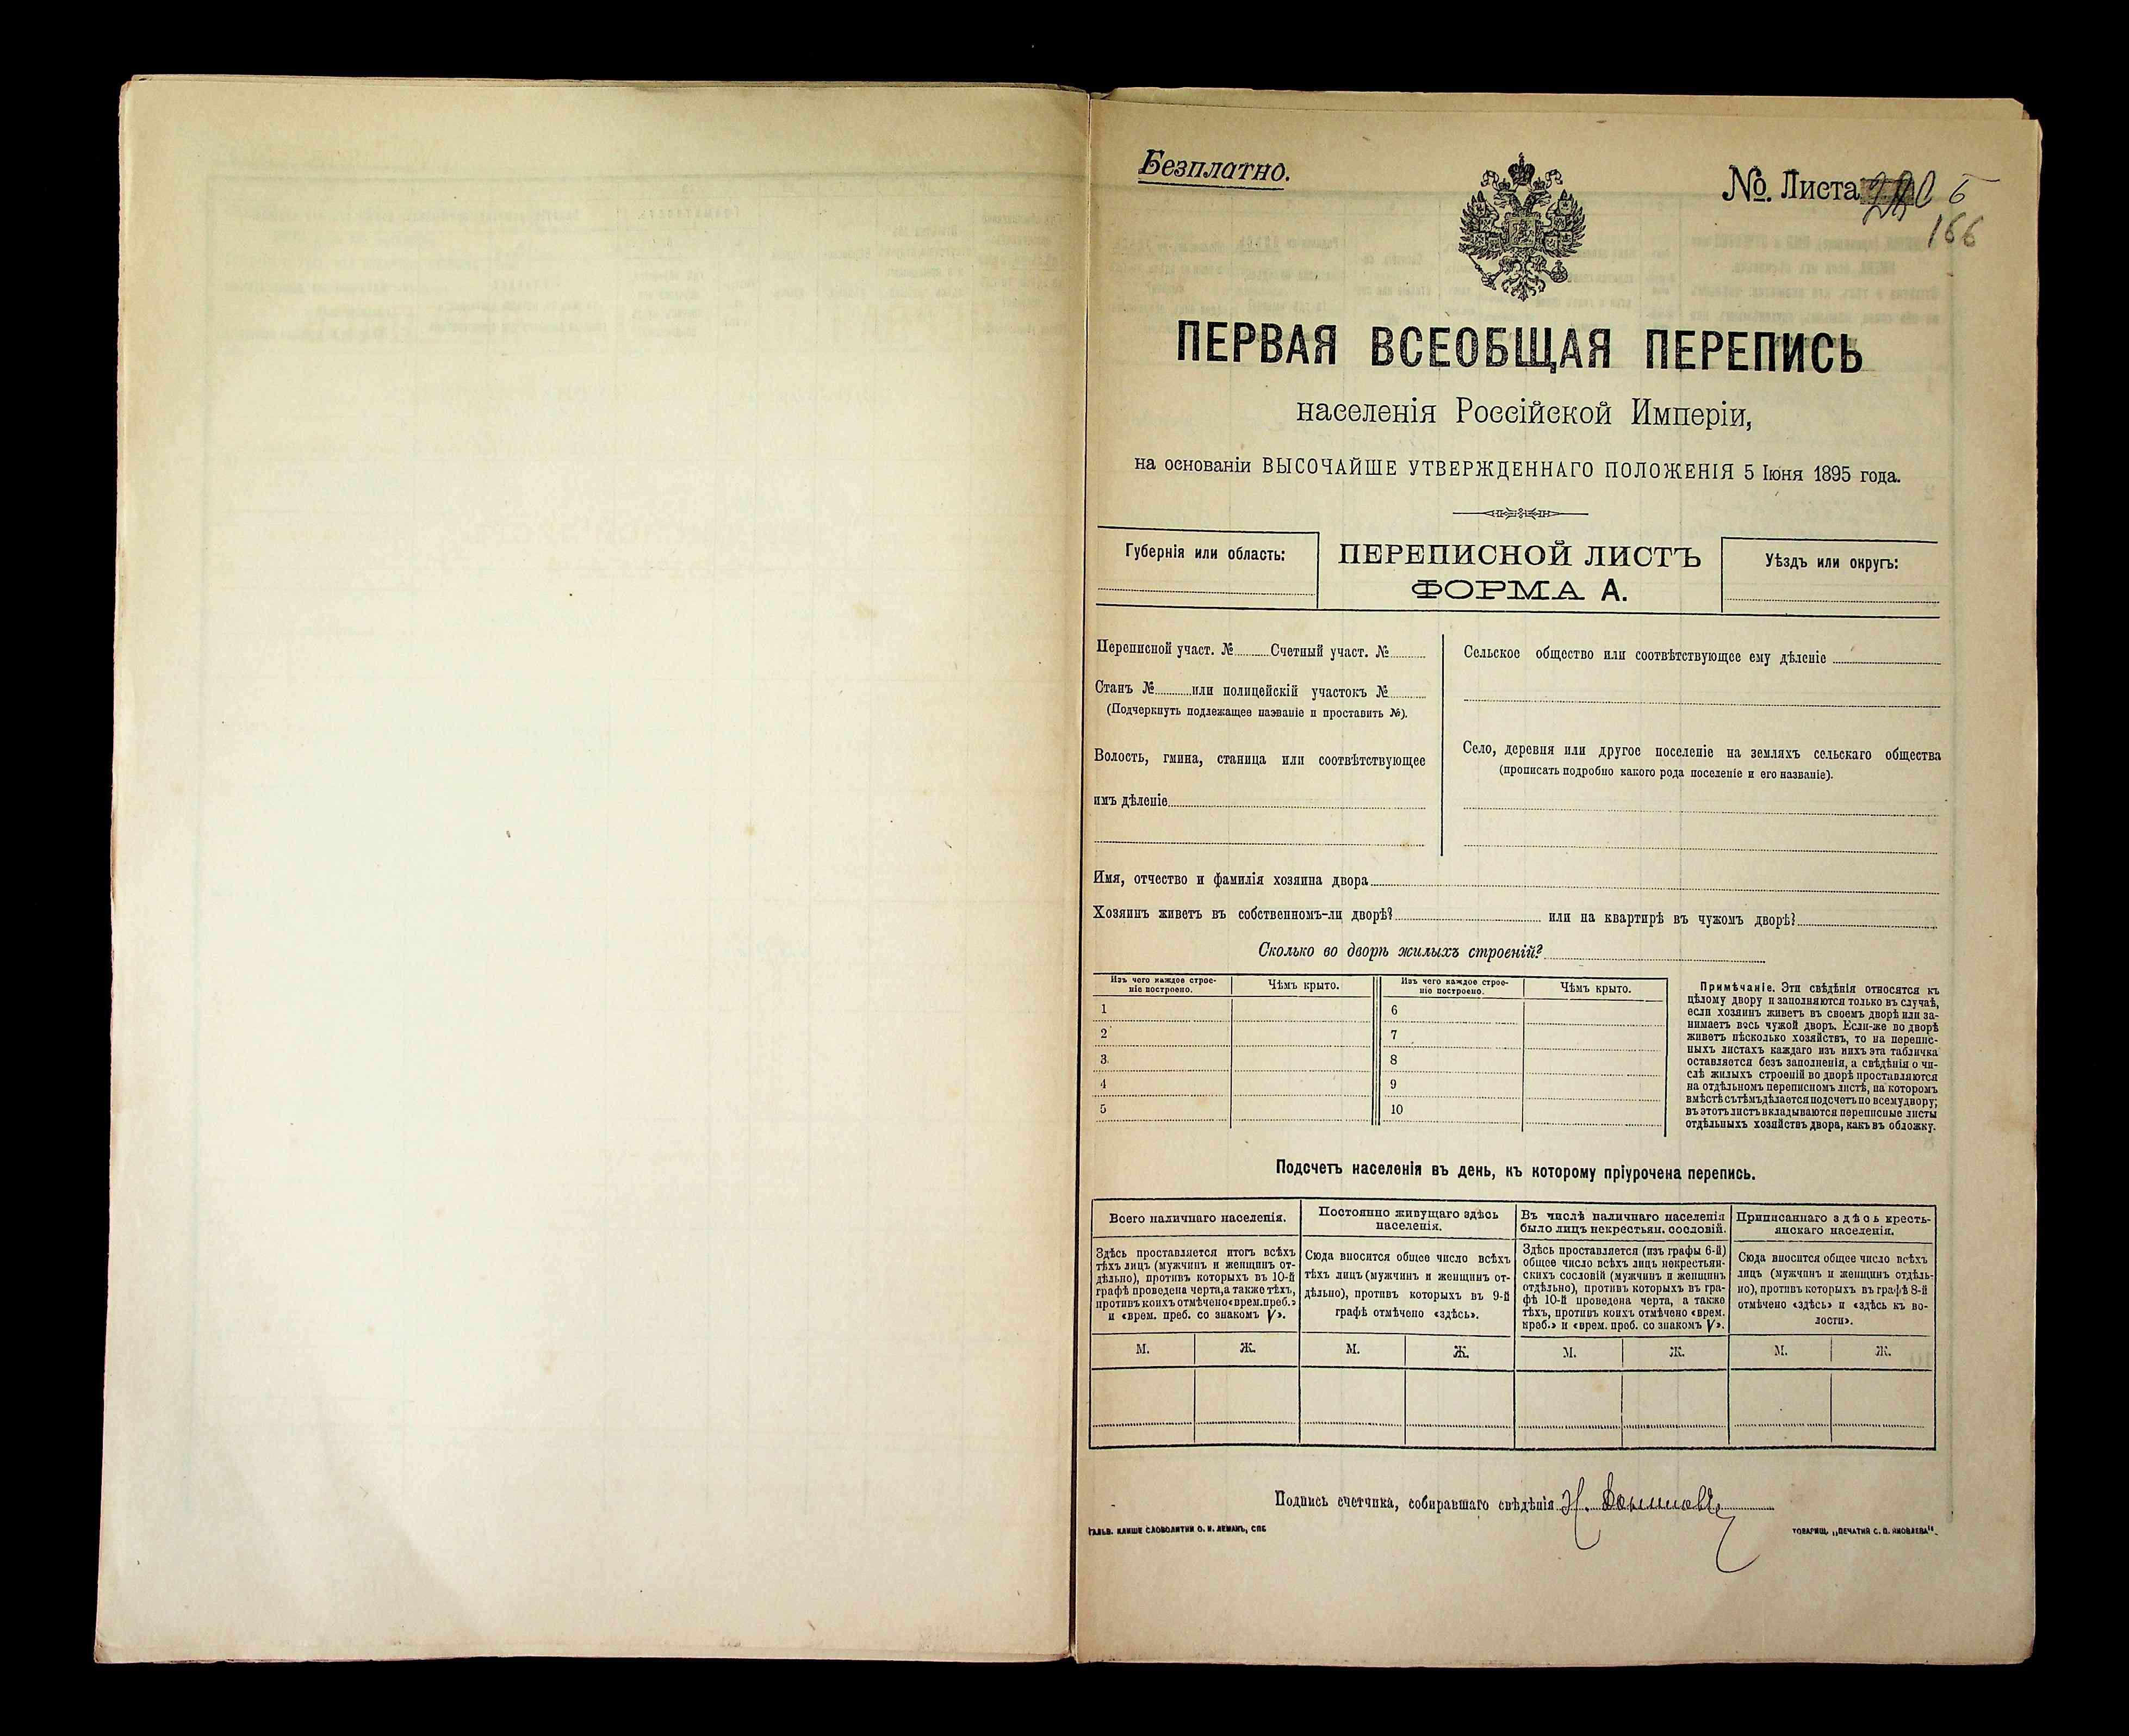 Безплатно.
№. Листа
166
ПЕРВАЯ ВСЕОБЩАЯ ПЕРЕПИСЬ
населенія Россійской Имперіи,
на основаніи ВЫСОЧАЙШЕ УТВЕРЖДЕННАГО ПОЛОЖЕНІЯ 5 Іюня 1895 года.
Губернія или область:
ПЕРЕПИСНОЙ ЛИСТЪ
ФОРМА А.
Уѣздъ или округъ:
Переписной участ. № Счетный участ. №
Станъ № или полицейскій участокъ №
(Подчеркнуть подлежащее названіе и проставить №).
Волость, гмина, станица или соотвѣтствующее
имъ дѣленіе
Сельское общество или соотвѣтствующее ему дѣленіе
Село, деревня или другое поселеніе на земляхъ сельскаго общества
(прописать подробно какого рода поселеніе и его названіе).
Имя, отчество и фамилія хозяина двора
Хозяинъ живетъ въ собственномъ-ли дворѣ? или на квартирѣ въ чужомъ дворѣ?
Сколько во дворѣ жилыхъ строеній?
Изъ чего каждое строе-
ніе построено.
Чѣмъ крыто.
Изъ чего каждое строе-
ніе построено.
Чѣмъ крыто.
1 6
2 7
3 8
4 9
5 10
Примѣчаніе. Эти свѣдѣнія относятся къ
цѣлому двору и заполняются только въ случаѣ,
если хозяинъ живетъ въ своемъ дворѣ или за-
нимаетъ весь чужой дворъ. Если-же во дворѣ
живетъ нѣсколько хозяйствъ, то на перепис-
ныхъ листахъ каждаго изъ нихъ эта табличка
оставляется безъ заполненія, а свѣдѣнія о чи-
слѣ жилыхъ строеній во дворѣ проставляются
на отдѣльномъ переписномъ листѣ, на которомъ
вмѣстѣ съ тѣмъ дѣлается подсчетъ по всему двору;
въ этотъ листъ вкладываются переписные листы
отдѣльныхъ хозяйствъ двора, какъ въ обложку.
Подсчетъ населенія въ день, къ которому пріурочена перепись.
Всего наличнаго населенія.
Здѣсь проставляется итогъ всѣхъ
тѣхъ лицъ (мужчинъ и женщинъ от-
дѣльно), противъ которыхъ въ 10-й
графѣ проведена черта, а также тѣхъ,
противъ коихъ отмѣчено «врем. преб.»
и «врем. преб. со знакомъ V».
М. Ж.
Постоянно живущаго здѣсь
населенія.
Сюда вносится общее число всѣхъ
тѣхъ лицъ (мужчинъ и женщинъ от-
дѣльно), противъ которыхъ въ 9-й
графѣ отмѣчено «здѣсь».
М. Ж.
Въ числѣ наличнаго населенія
было лицъ некрестьян. сословій.
Здѣсь проставляется (изъ графы 6-й)
общее число всѣхъ лицъ некрестьян-
скихъ сословій (мужчинъ и женщинъ
отдѣльно), противъ которыхъ въ гра-
фѣ 10-й проведена черта, а также
тѣхъ, противъ коихъ отмѣчено «врем.
преб.» и «врем. преб. со знакомъ V».
М. Ж.
Приписаннаго здѣсь кресть-
янскаго населенія.
Сюда вносится общее число всѣхъ
лицъ (мужчинъ и женщинъ отдѣль-
но), противъ которыхъ въ графѣ 8-й
отмѣчено «здѣсь» и «здѣсь къ во-
лости».
М. Ж.
Подпись счетчика, собиравшаго свѣдѣнія
ГАЛЬВ. КЛИШЕ СЛОВОЛИТНИ О. И. ЛЕМАНЪ, СПБ
ТОВАРИЩ. „ПЕЧАТНЯ С. П. ЯКОВЛЕВА".